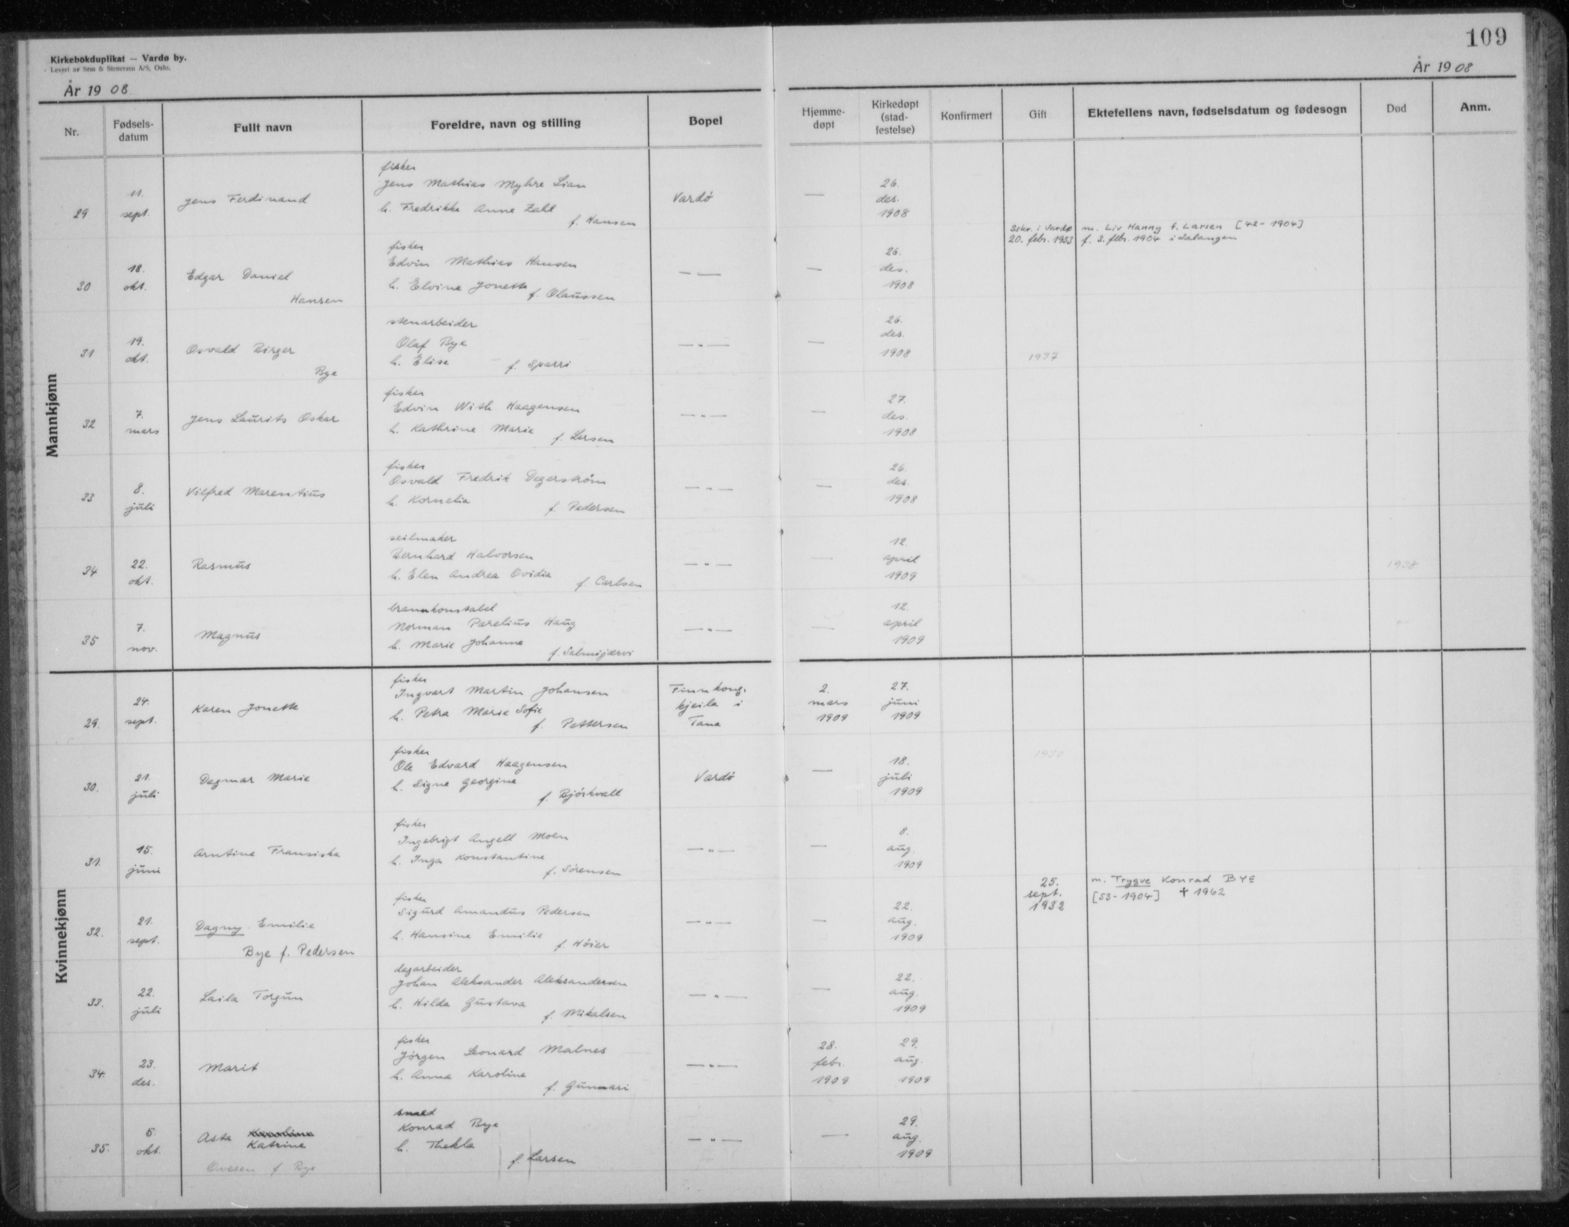 109
Kirkebokduplikat — Vardø by.
Levert av Sem & Stenersen A/S, Oslo.
År 19 08
År 19 08
Nr.
Fødsels-
datum
Fullt navn
Foreldre, navn og stilling
Bopel
Hjemme-
døpt
Kirkedøpt
(stad-
festelse)
Konfirmert
Gift
Ektefellens navn, fødselsdatum og fødesogn
Død
Anm.
Mannkjønn
29
11.
sept.
Jens Ferdinand
fisker
Jens Mathias Myhre Lian
h. Fredrikke Anna Dahl
f. Hansen
Vardø
—
26.
des.
1908
30
18.
okt.
Edgar Daniel
Hansen
fisker
Edvin Mathias Hansen
h. Elvine Jonette
f. Olaussen
— —
—
26.
des.
1908
i Vardø
20. febr. 1933
m. Liv Hanny f. Larsen [42-1904]
f. 3. febr. 1904 i Salangen
31
19.
okt.
Osvald Birger
Bye
stenarbeider
Olaf Bye
h. Elise
f. Sparri
— " —
—
26.
des.
1908
1937
32
7.
mars
Jens Laurits Oskar
fisker
Edvin With Haagensen
h. Kathrine Marie
f. Larsen
— " —
—
27.
des.
1908
33
8.
juli
Vilfred Marentius
fisker
Osvald Fredrik Degerstrøm
h. Kornelia
f. Pedersen
— " —
—
26.
des.
1908
34
22.
okt.
Rasmus
seilmaker
Bernhard Halvorsen
h. Elen Andrea Ovidia
f. Carlsen
— " —
—
12.
april
1909
35
7.
nov.
Magnus
brannkonstabel
Norman Parelius Haug
h. Marie Johanne
f. Salmijærvi
— " —
—
12.
april
1909
Kvinnekjønn
29.
24.
sept.
Karen Jonette
fisker
Ingvart Martin Johansen
h. Petra Marie Sofie
f. Pettersen
Finnkong-
kjeila i
Tana
2.
mars
1909
27.
juni
1909
30.
21.
juli
Dagmar Marie
fisker
Ole Edvard Haagensen
h. Signe Georgine
f. Björkvall
Vardø
—
18.
juli
1909
31.
15.
juni
Arntine Fransiska
fisker
Ingebrigt Angell Moen
h. Inga Konstantine
f. Sörensen
— " —
—
8.
aug.
1909
32.
21.
sept.
Dagny Emilie
Bye f. Pedersen
fisker
Sigurd Amandus Pedersen
h. Hansine Emilie
f. Höier
— " —
—
22.
aug.
1909
25.
sept.
1932
m. Trygve Konrad BYE
[53-1904] † 1962
33.
22.
juli
Laila Torgun
dagarbeider
Johan Aleksander Aleksandersen
h. Hilda Gustava
f. Mikalsen
— " —
—
22.
aug.
1909
34.
23.
des.
Marit
fisker
Jörgen Leonard Malnes
h. Anna Karoline
f. Gunnari
— " —
28.
febr.
1909
29.
aug.
1909
35.
5
okt.
Asta
Katrine
f Bye
smed
Konrad Bye
h. Thekla
f. Larsen
— " —
—
29.
aug.
1909